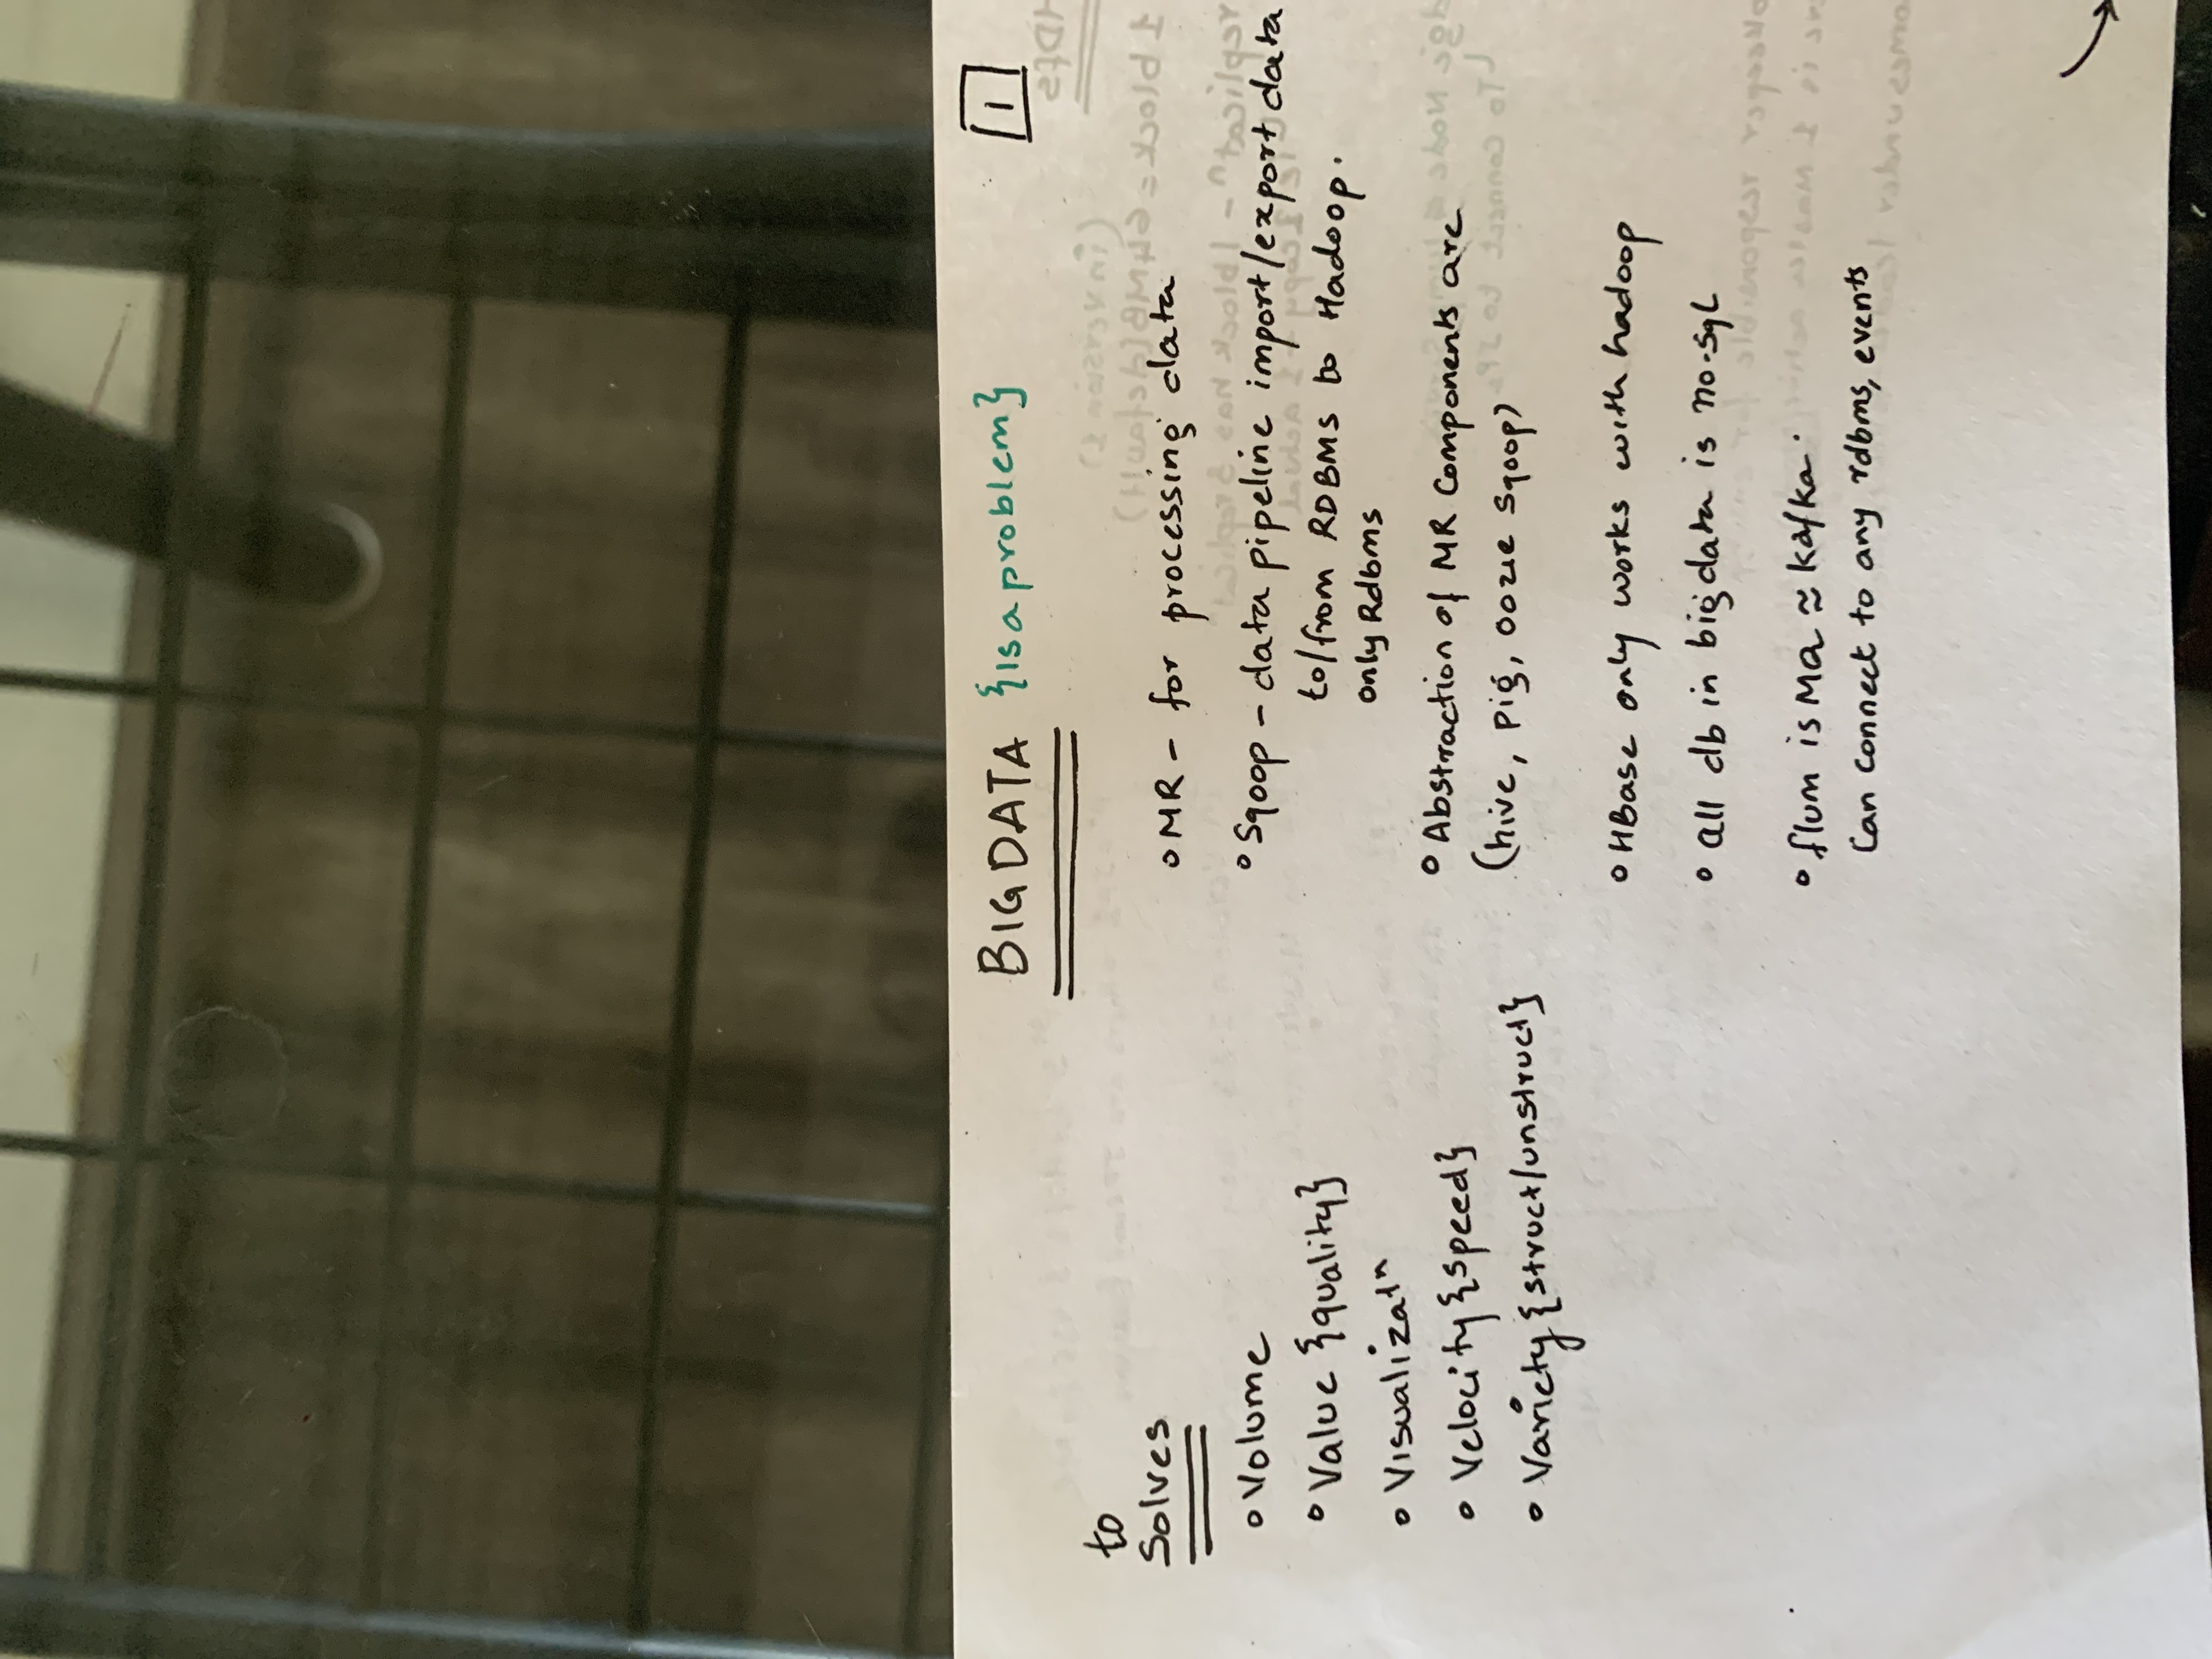 BIGDATA {Is a problem}
1
to
Solves
o Volume
o Value {quality}
o Visualizatn
o Velocity {speed}
o Variety {struct/unstruct}
o MR - for processing data
o Sqoop - data pipeline import/export data
to/from RDBMS to Hadoop.
only Rdbms
o Abstraction of MR Components are
(hive, pig, oozie Sqoop)
o HBase only works with hadoop
o all db in bigdata is no-sql
o flum is MQ ≈ kafka.
Can connect to any rdbms, events